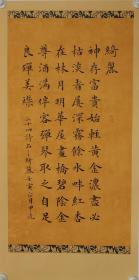 綺麗
神存富貴始輕黃金濃盡必
枯淡者屢深露餘水畔紅杏
在林月明華屋畫橋碧陰金
尊酒滿伴客彈琴取之自足
良殫美襟 二十四詩品之綺麗